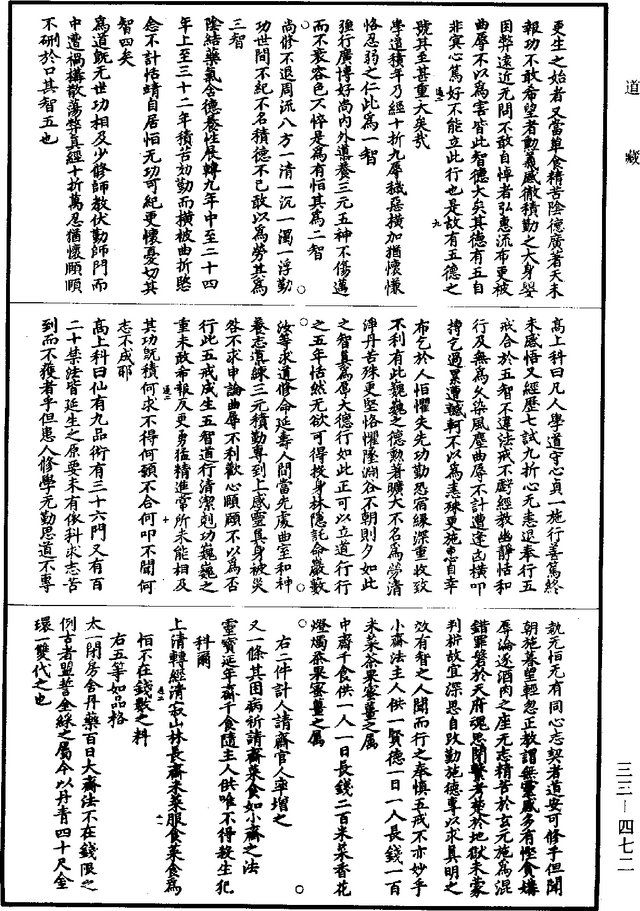 道藏
更生之始者又當單食精苦陰德廣著天未
報功不敢希望者勳羲感徹積勤之大身嬰
困弊遠近无問不敢自悼者弘惠流布更被
曲辱不以為害皆此智德大矣其德有五自
非冥心篤好不能立此行也是故有五德之
號其至甚重大矣哉
學道積年乃經十折九辱穢惡橫加猶懷慊
恪忍弱之仁此為一智
強行廣博好尚內外導養三元五神不傷邁
而不衰容色不悴是為有恒其為二智
尚修不退周流八方一清一沉一濁一浮勤
功世間不紀不名積德不已敢以為勞其為
三智
陰結藥氣含德養性展轉九年中至二十四
年上至三十二年積苦妙勤而橫被曲折慜
念不計恬靖自居恒无功可紀更懷憂切其
智四矣
為道既无世功相及少修師教伏勤師門而
中遭禍構散蕩弊真經十折萬忍猶懷願願
不刪於口其智五也
高上科曰凡人學道守心貞一施行善篤終
未感悟又經歷七試九折心无恚退奉行五
戒合於五智不違法戒不虧經教幽靜恬和
行及無為久染風塵曲辱不計遭逢凶橫叩
搏乞過累遭轗軻不以為恚殊更施惠自幸
布乞於人恒懼失先功勤恐宿緣深重收致
不利有此巍巍之德勳著曠大不名為勞清
淨丹苦殊更堅恪懼墜淵谷不朝則夕如此
之智真為厚大德行如此正可以立道行行
之五年恬然无欲可得投身林隱託命巖藪
汝等求道修命延壽人間當先處曲室和神
養志道練三元積勤專到上感靈真身被災
咎不求申論曲辱不利歡心願願不以為否
行此五戒成生五智道行清潔剋功巍巍之
重未敢布報反更勇猛精進常所未能相及
其功既積何求不得何願不合何叩不聞何
志不成耶
高上科曰仙有九品術有三十六門又有百
二十禁法皆延生之原要未有依科求志苦
到而不獲者乎但患人修學无勤思道不專
既无恒无有同心志契者道安可修乎但聞
朝施暮望輕忽正教謂無靈感多有慳貪嫌
辱論遂酒肉之座无志精苦於玄元施為混
錯罪磐於天府魂思閉繫考華於地獄未蒙
判栟故宜深思自改勤施德專以求真明之
效有智之人聞而行之奉慎五戒不亦妙乎
小齋法主人供一賢德一日一人長錢一百
米菜茶果蜜薑之屬
中齋千食供一人一日長錢二百米菜香花
燈燭茶果蜜薑之屬
右二件計人請齋官人率增之
又一條其困病祈請齋菜食如小齋之法
靈寶延年齋千食隨主人供唯不得殺生犯
科爾
上清轉經濟一寂山林長齋未菜服食菜食為
恒不在錢數之科
右五等如品格
太一閉房舍丹藥百日大齋法不在錢限之
例古者盟誓金綵之屬今以丹青四十尺金
環一雙代之也
三三—四七二